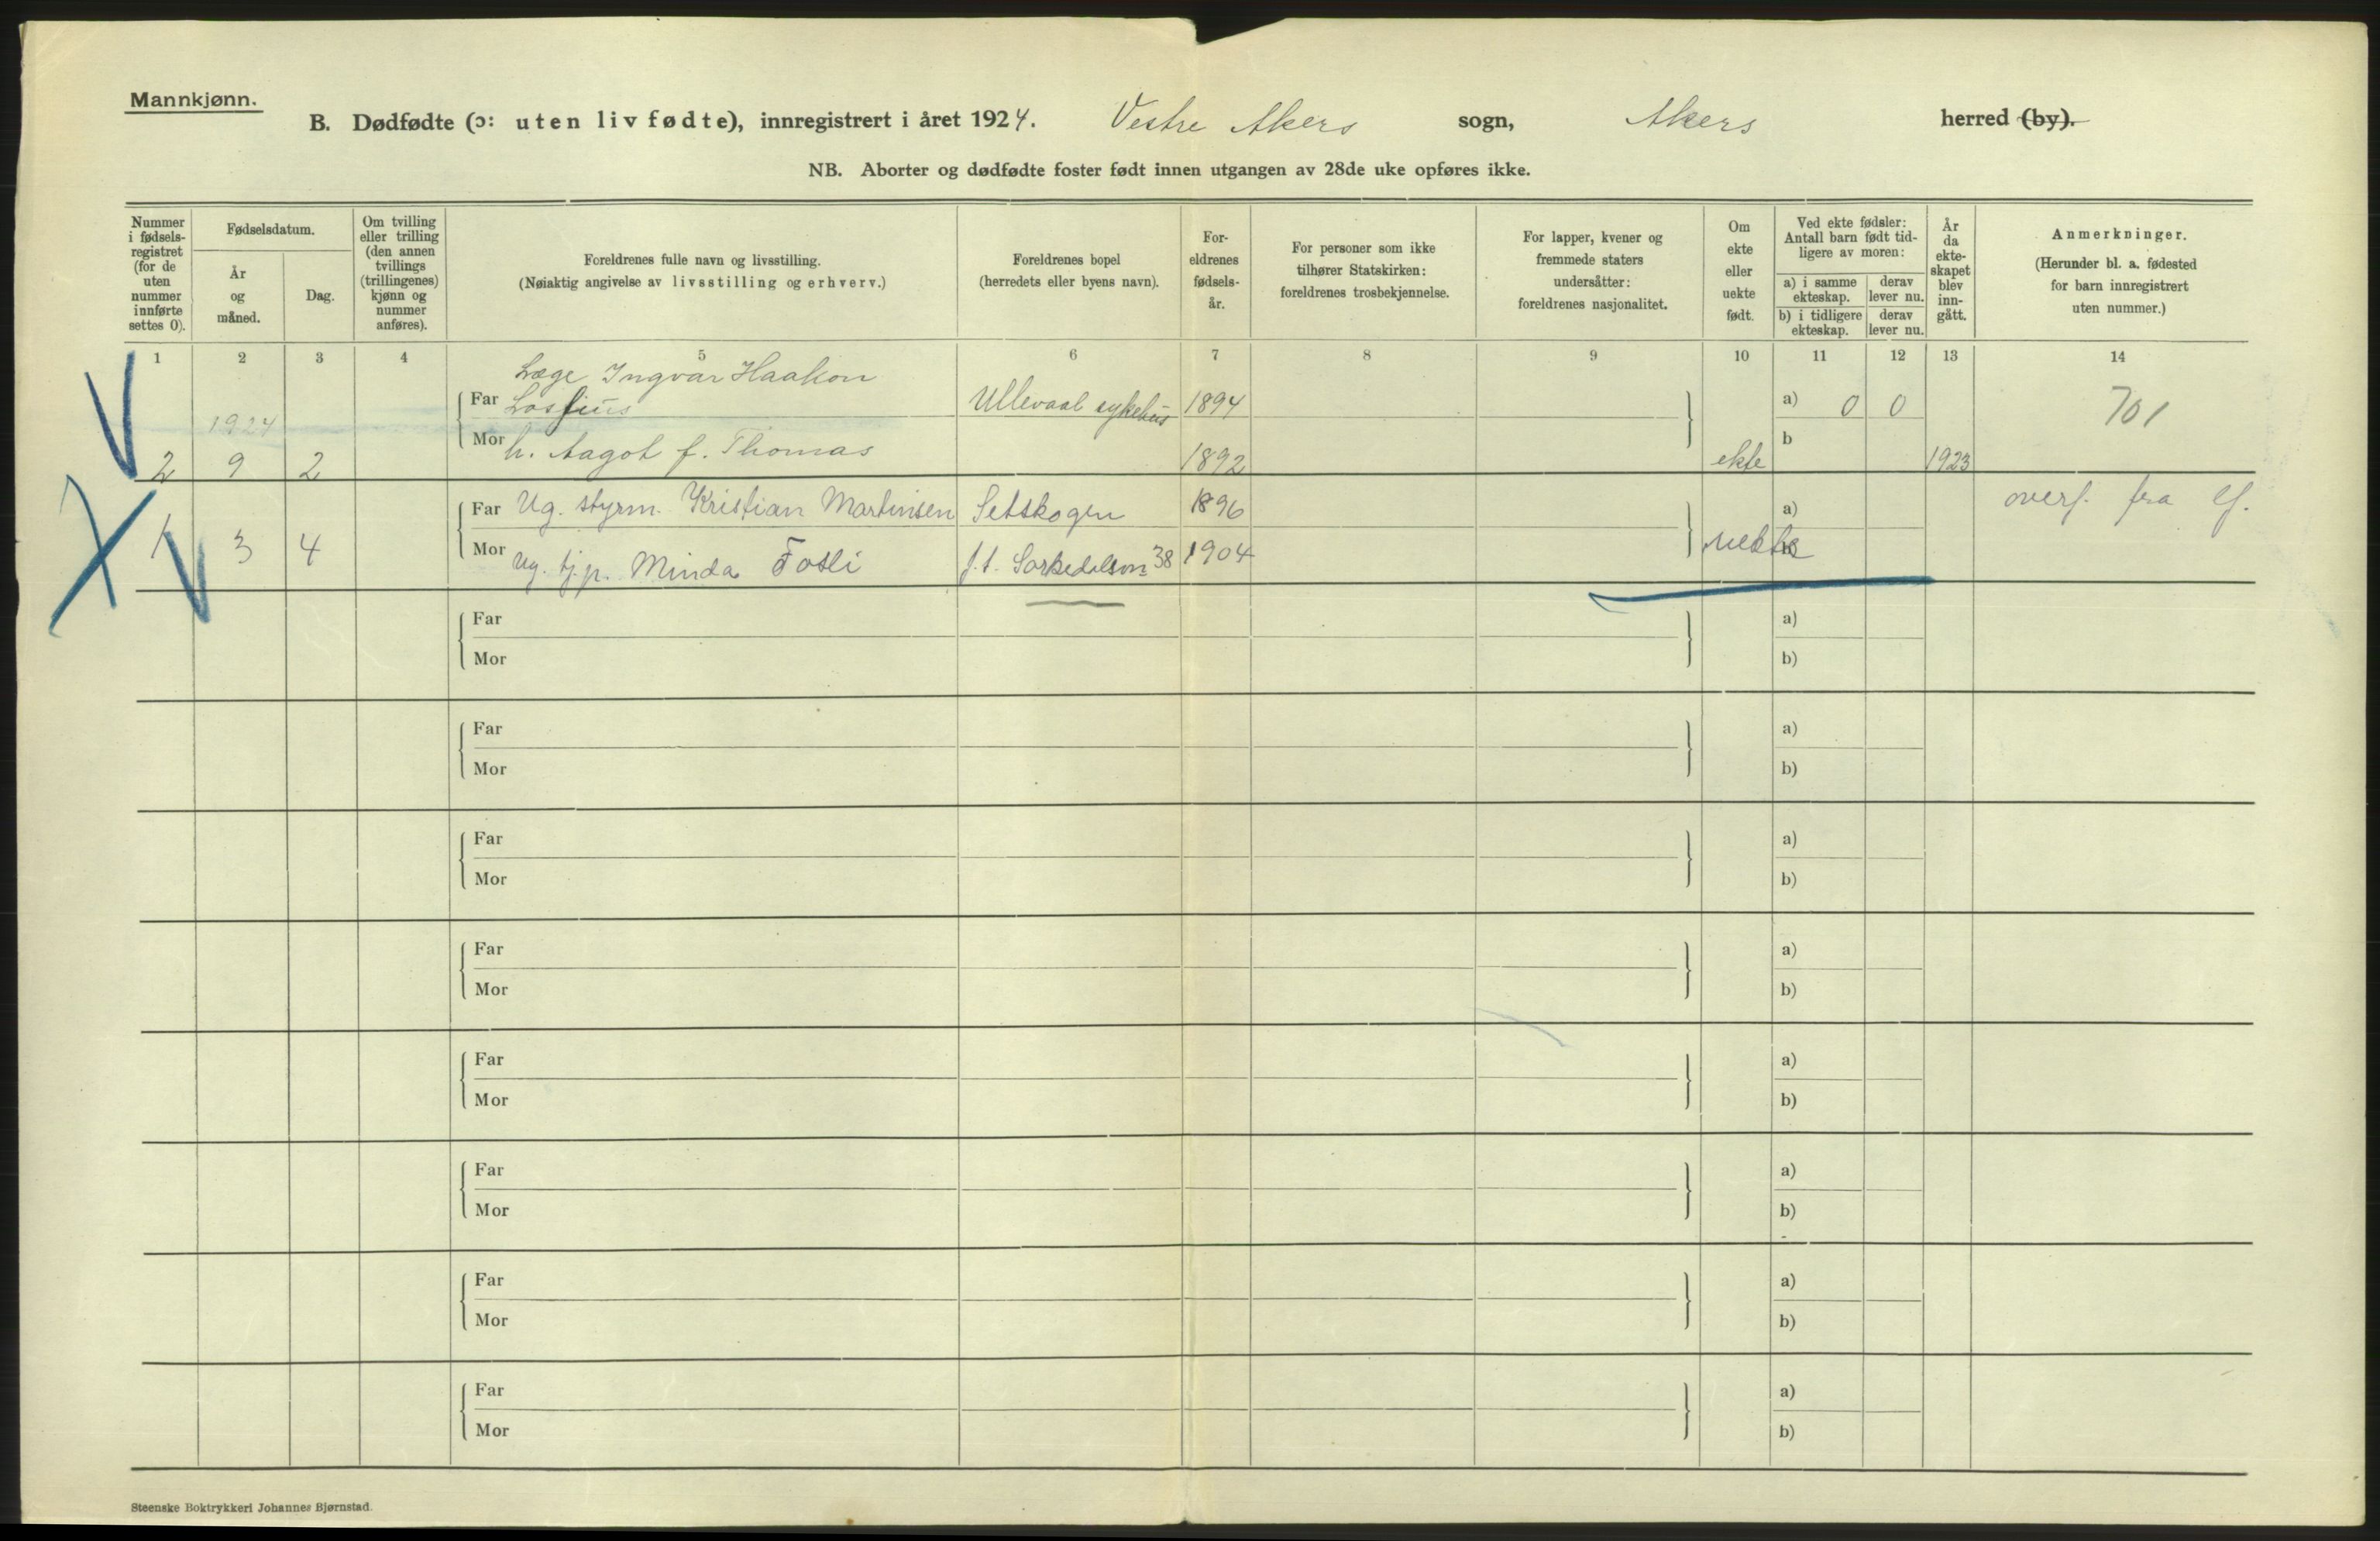 Mannkjønn.
B. Dødfødte (ɔ: uten liv fødte), innregistrert i året 1924. Vestre Akers sogn, Akers herred (by).
NB. Aborter og dødfødte foster født innen utgangen av 28de uke opføres ikke.
Nummer
i fødsels-
registret
(for de
uten
nummer
innførte
settes 0).
Fødselsdatum.
År
og
måned.
Dag.
Om tvilling
eller trilling
(den annen
tvillings
(trillingenes)
kjønn og
nummer
anføres).
Foreldrenes fulle navn og livsstilling.
(Nøiaktig angivelse av livsstilling og erhverv.)
Foreldrenes bopel
(herredets eller byens navn).
For-
eldrenes
fødsels-
år.
For personer som ikke
tilhører Statskirken:
foreldrenes trosbekjennelse.
For lapper, kvener og
fremmede staters
undersåtter:
foreldrenes nasjonalitet.
Om
ekte
eller
uekte
født.
Ved ekte fødsler:
Antall barn født tid-
ligere av moren:
a) i samme
ekteskap.
derav
lever nu.
b) i tidligere
ekteskap.
derav
lever nu.
År
da
ekte-
skapet
blev
inn-
gått.
Anmerkninger.
(Herunder bl. a. fødested
for barn innregistrert
uten nummer.)
1 2 3 4 5 6 7 8 9 10 11 12 13 14
Læge Ingvar Haakon
Far Lossius Ullevaal sykehus 1894 a) 0 0 701
1924
Mor h. Aagot f. Thomas b
2 9 2 1892 ekte 1923
Far Ug. styrm. Kristian Martinsen Setskogen 1896 a) overf. fra
1 3 4 Mor ug. tj.p. Minda Fosli 38 1904 uekte
Far a)
Mor b)
Far a)
Mor b)
Far a)
Mor b)
Far a)
Mor b)
Far a)
Mor b)
Far a)
Mor b)
Far a)
Mor b)
Far a)
Mor b)
Steenske Boktrykkeri Johannes Bjørnstad.